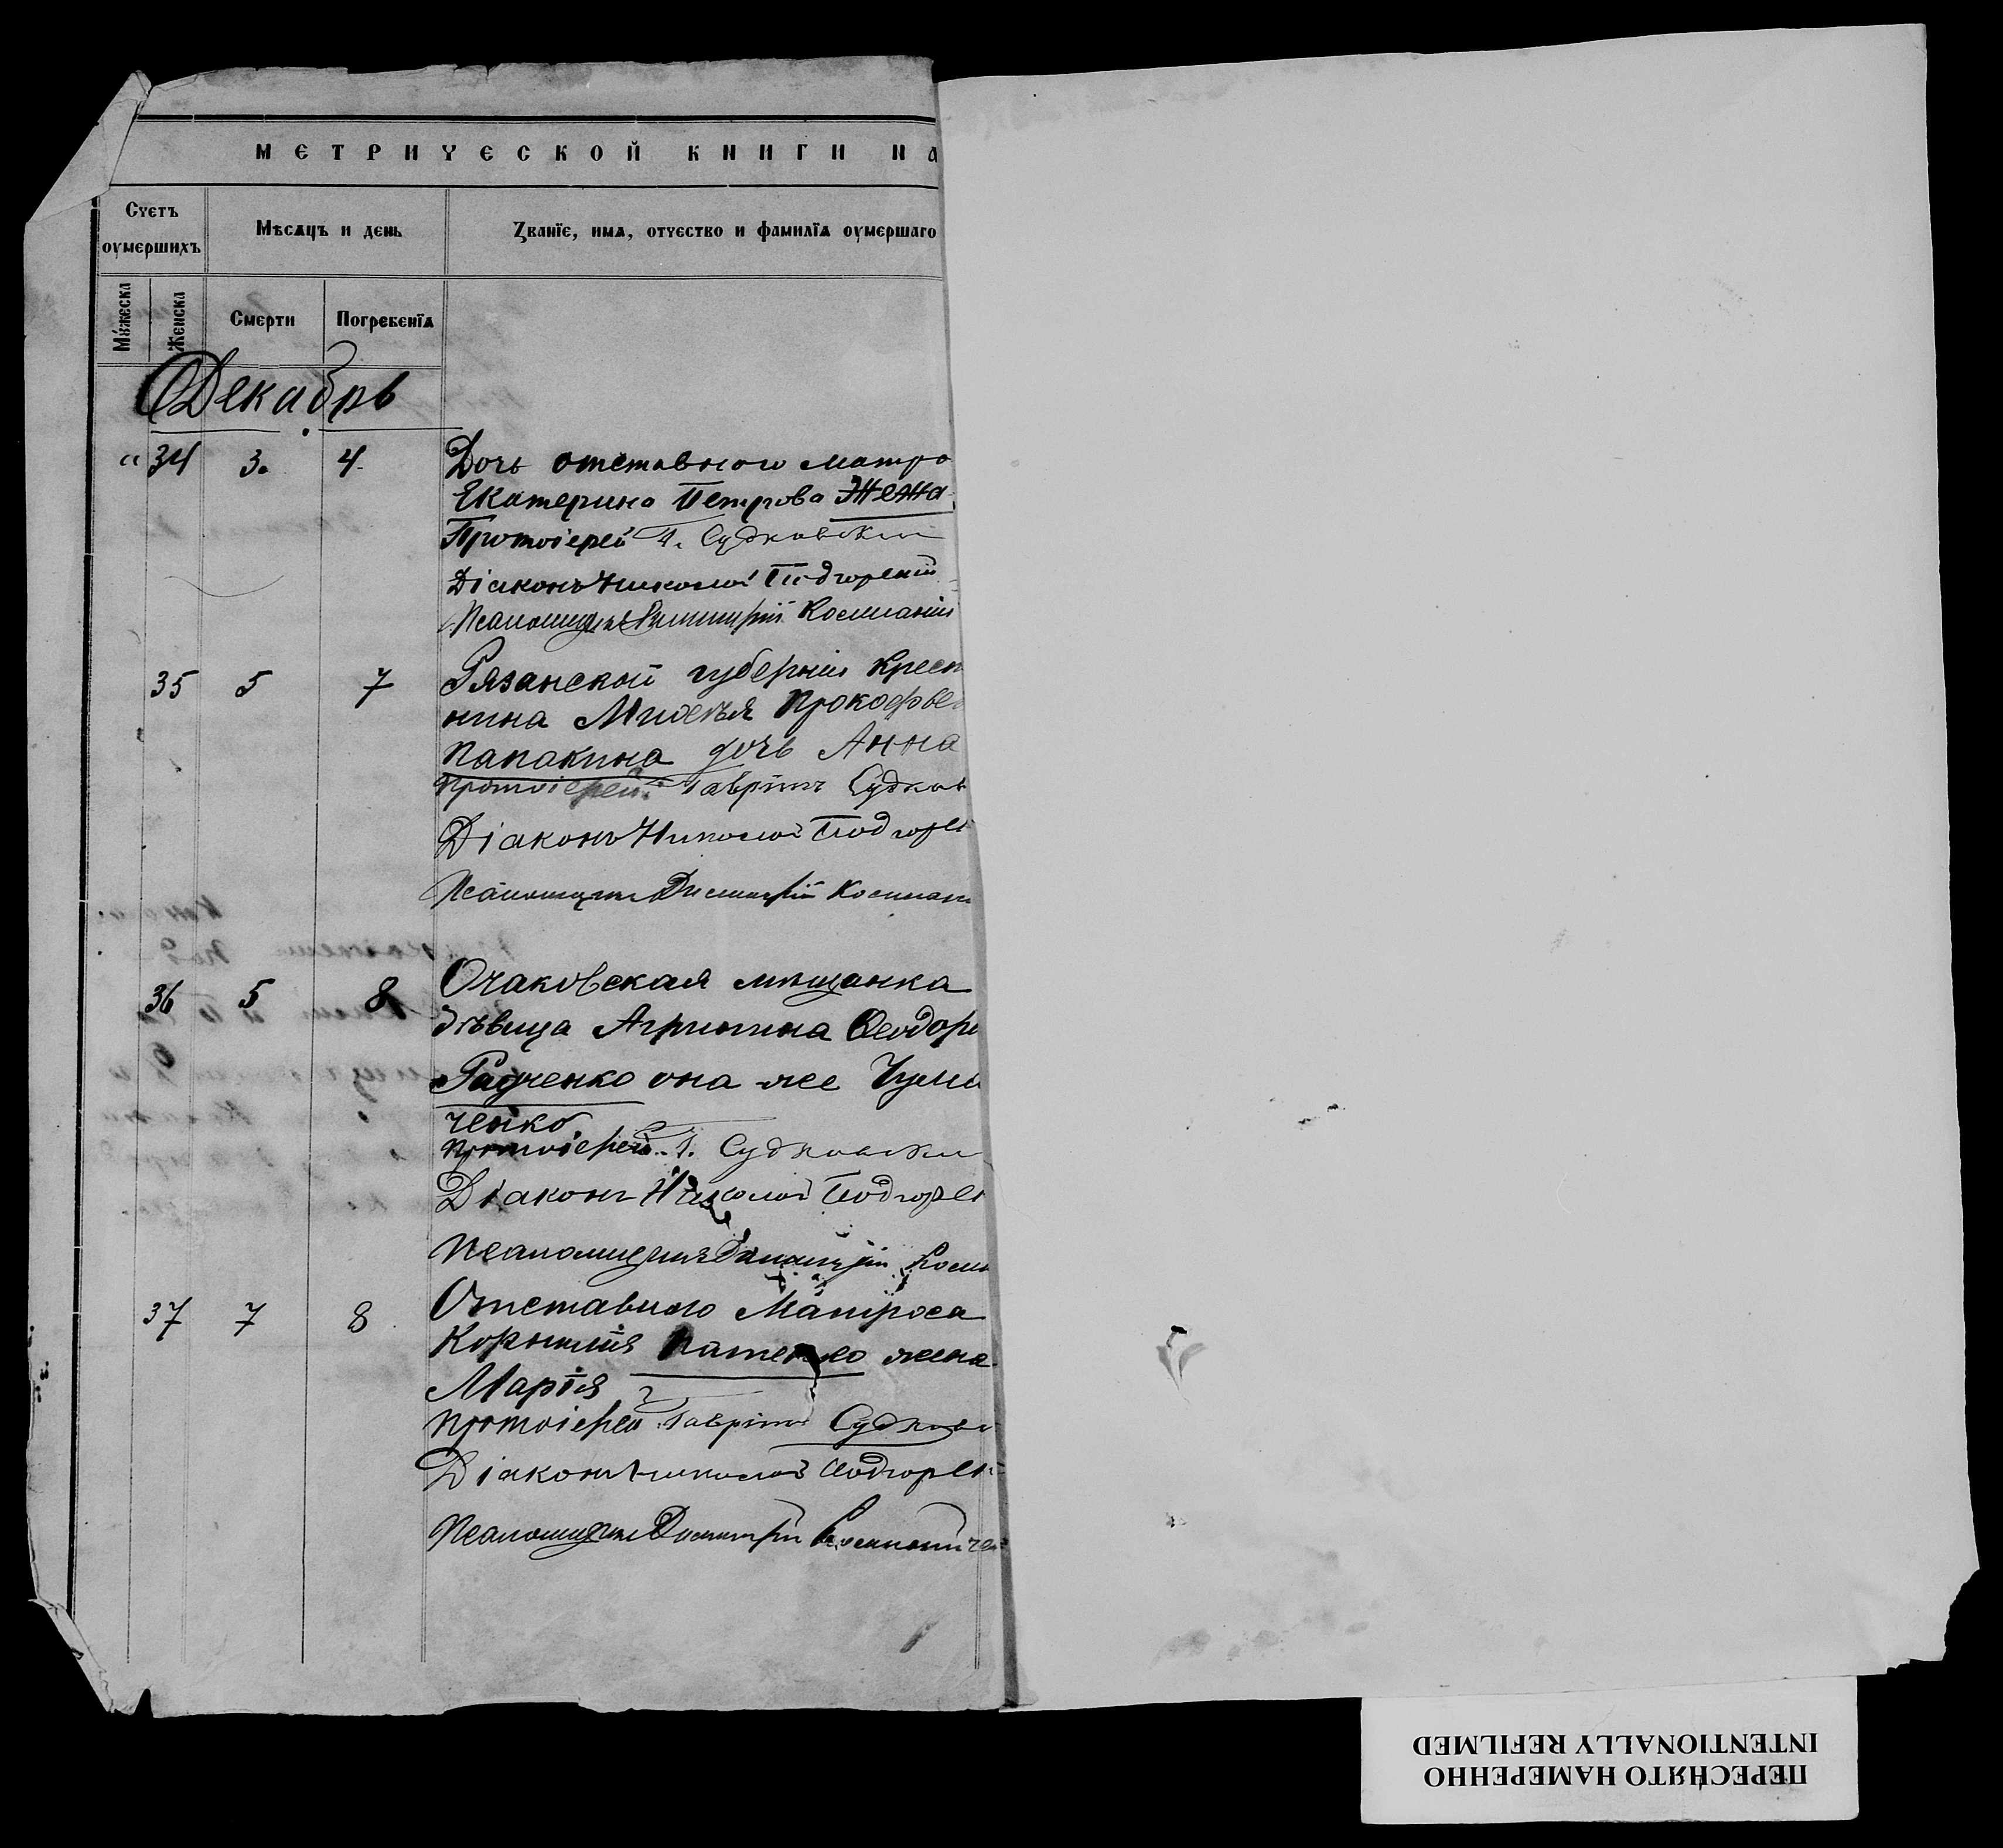 МЕТРИЧЕСКОЙ КНИГИ НА
Счетъ оумершихъ
Мѣсяцъ и день
Званїе, имя, отчество и фамилїя оумершаго
Мужеска
Женска
Смерти
Погребенїя
Декабрь
" 34 3. 4. Дочь отставного матро
Екатерина Петрова Жежа
Протоіерей Г. Судковскій
Діаконъ Николай Подгорений
Псаломщикъ Димитрій
35 5 7 Рязанской губерніи Крест
нина Прокофье
Папакина дочь Анна
Протоіерей Гавріилъ Судков
Діаконъ Николай Подгоре
Псаломщикъ Димитрій
36 5 8 Очаковская мѣщанка
дѣвица Агрипина Ѳеодоро
Радченко она же
ченко
Протоіерей Г. Судковскій
Діаконъ Николай Подгоре
Псаломщикъ Димитрій
37 7 8 Отставного Матроса
Корнилія жена
Марія
Протоіерей Гавріилъ Судковс
Діаконъ Николай Подгоре
Псаломщикъ Димитрій
ПЕРЕСНЯТО НАМЕРЕННО
INTENTIONALLY REFILMED